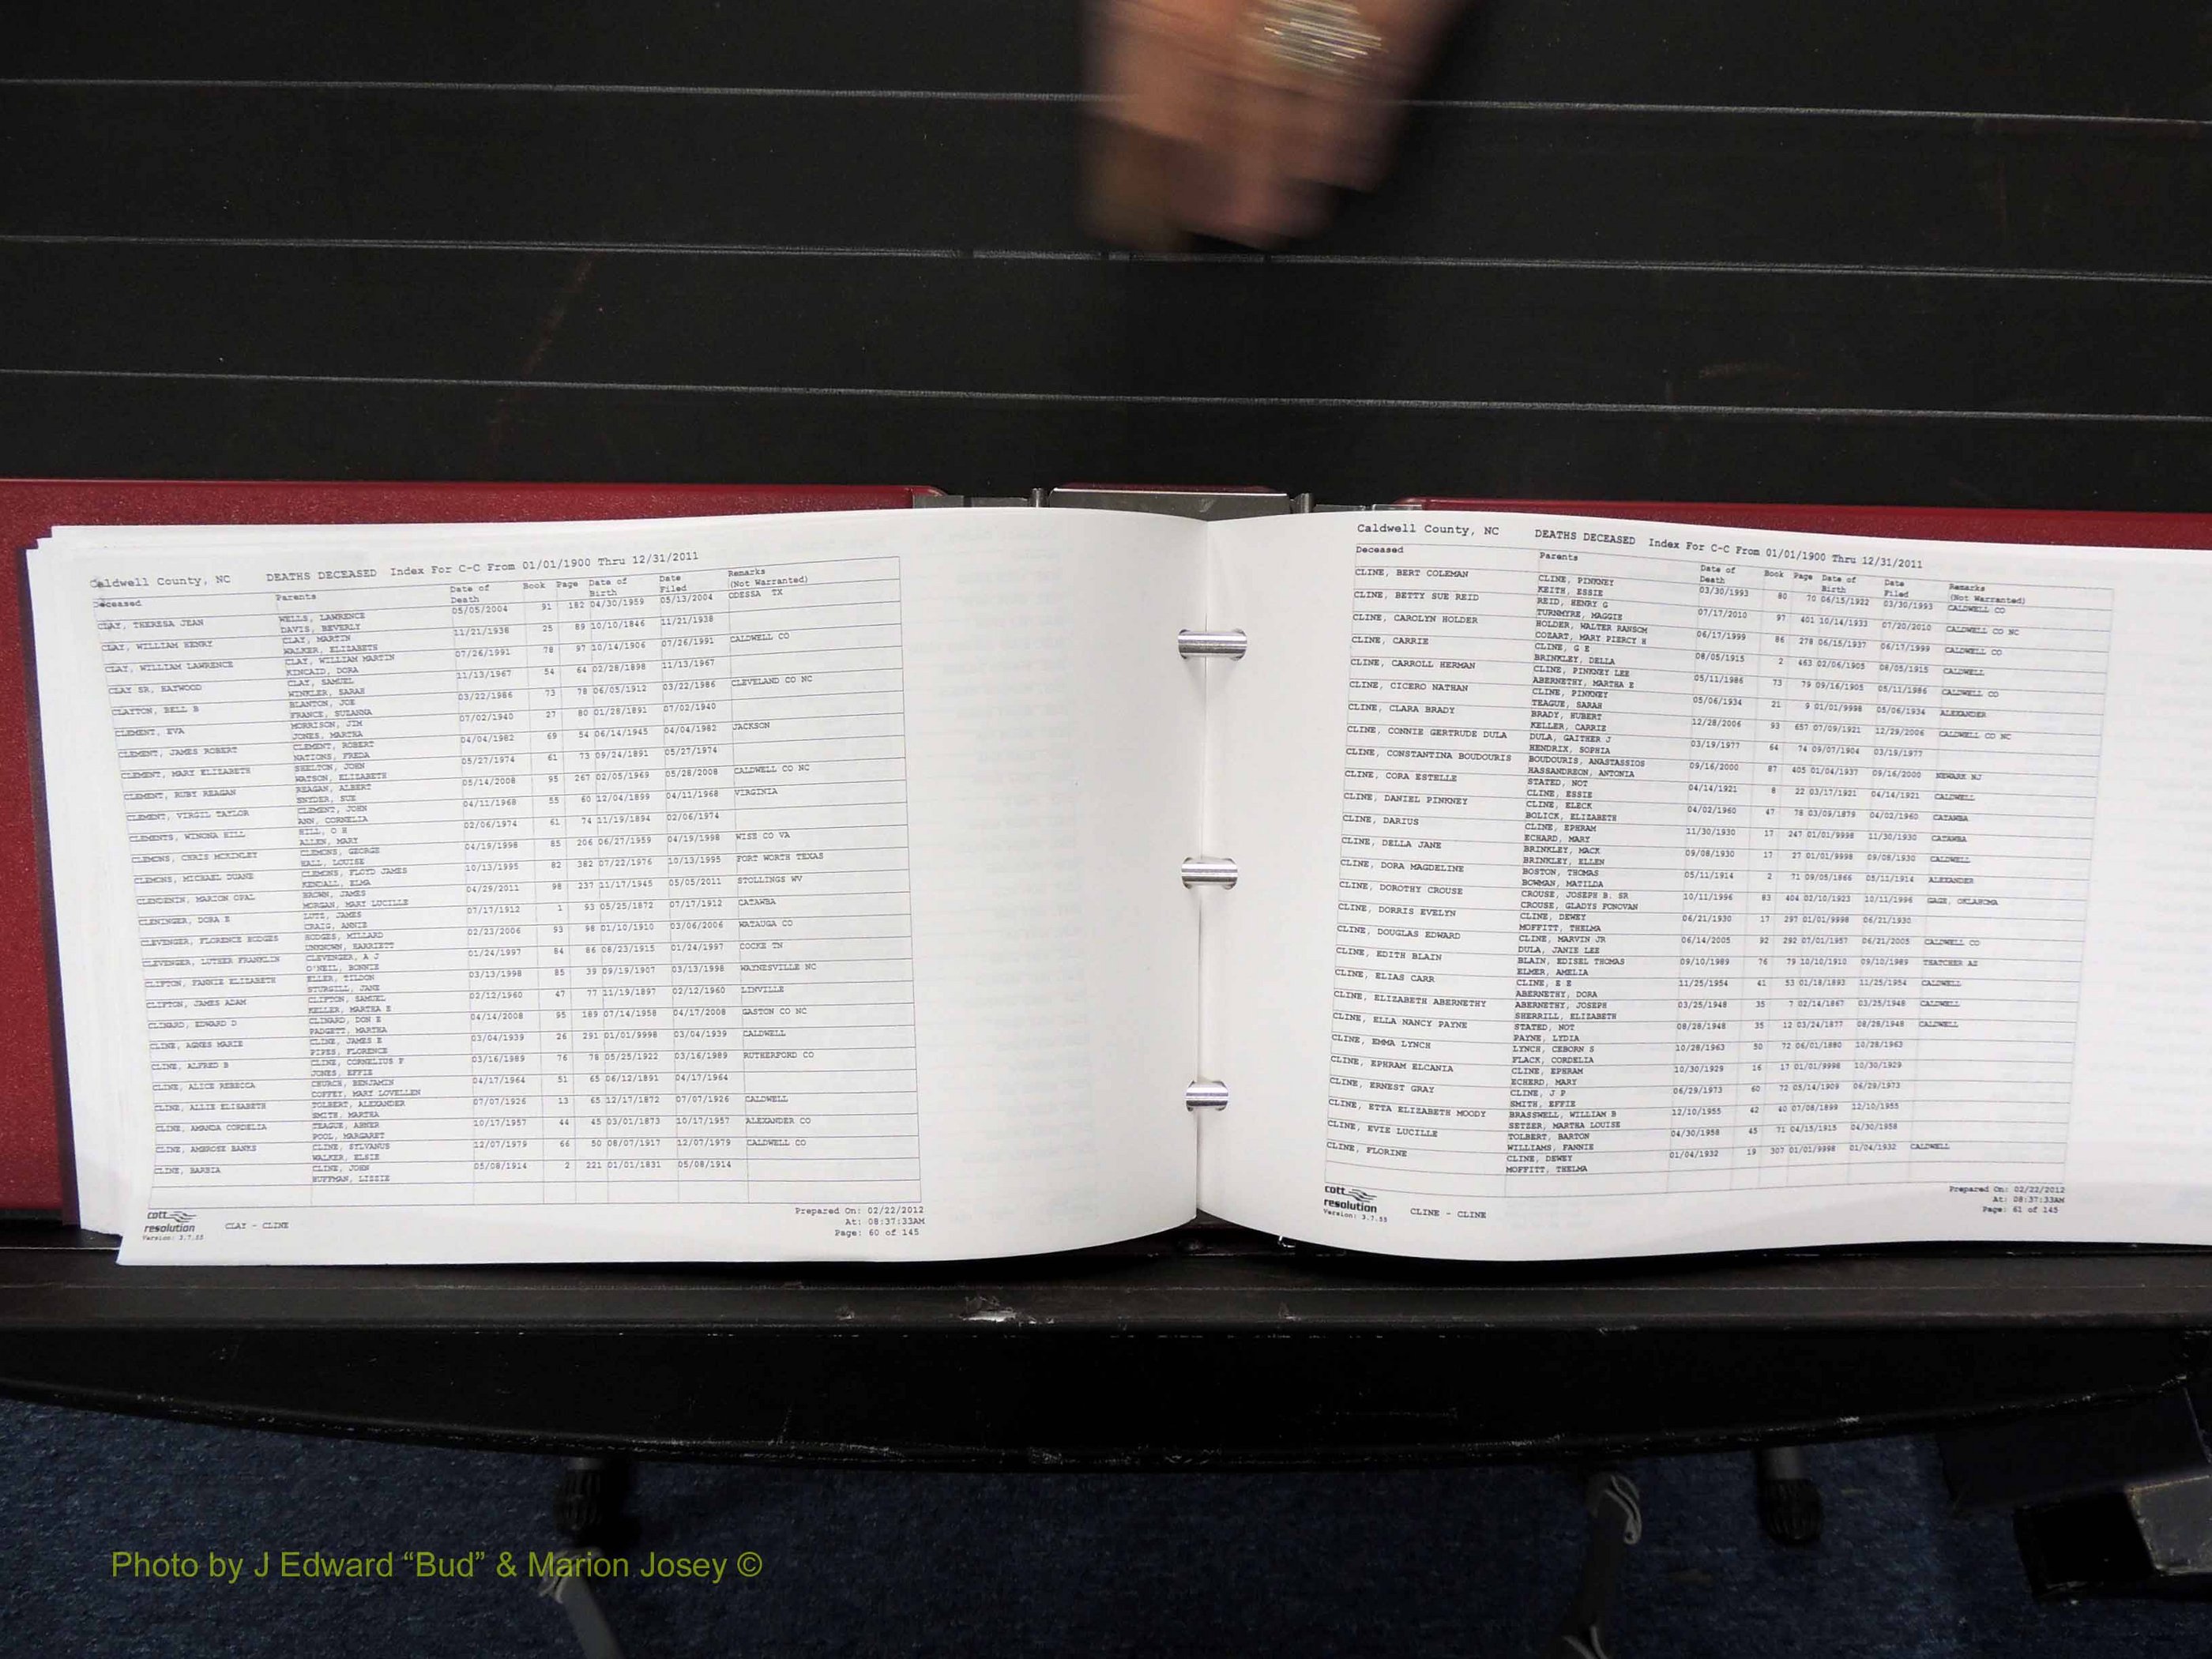 Caldwell County, NC DEATHS DECEASED Index For C-C From 01/01/1900 Thru 12/31/2011
Deceased Parents Date of Death Book Page Date of Birth Date Filed Remarks (Not Warranted)
CLAY, THERESA JEAN WELLS, LAWRENCE 05/05/2004 91 182 04/30/1959 05/13/2004 ODESSA TX
DAVIS, BEVERLY
CLAY, WILLIAM HENRY CLAY, MARTIN 11/21/1938 25 89 10/10/1846 11/21/1938
WALKER, ELIZABETH
CLAY, WILLIAM LAWRENCE CLAY, WILLIAM MARTIN 07/26/1991 78 97 10/14/1906 07/26/1991 CALDWELL CO
KINCAID, DORA
CLAY SR, HAYWOOD CLAY, SAMUEL 11/13/1967 54 64 02/28/1898 11/13/1967
WINKLER, SARAH
CLAYTON, BELL B BLANTON, JOE 03/22/1986 73 78 06/05/1912 03/22/1986 CLEVELAND CO NC
FRANCE, SUZANNA
CLEMENT, EVA MORRISON, JIM 07/02/1940 27 80 01/28/1891 07/02/1940
JONES, MARTHA
CLEMENT, JAMES ROBERT CLEMENT, ROBERT 04/04/1982 69 54 06/14/1945 04/04/1982 JACKSON
NATIONS, FREDA
CLEMENT, MARY ELIZABETH SHELTON, JOHN 05/27/1974 61 73 09/24/1891 05/27/1974
WATSON, ELIZABETH
CLEMENT, RUBY REAGAN REAGAN, ALBERT 05/14/2008 95 267 02/05/1969 05/28/2008 CALDWELL CO NC
SNYDER, SUE
CLEMENT, VIRGIL TAYLOR CLEMENT, JOHN 04/11/1968 55 60 12/04/1899 04/11/1968 VIRGINIA
ANN, CORNELIA
CLEMENTS, WINONA HILL HILL, O H 02/06/1974 61 74 11/19/1894 02/06/1974
ALLEN, MARY
CLEMONS, CHRIS MCKINLEY CLEMONS, GEORGE 04/19/1998 85 206 06/27/1959 04/19/1998 WISE CO VA
HALL, LOUISE
CLEMONS, MICHAEL DUANE CLEMONS, FLOYD JAMES 10/13/1995 82 382 07/22/1976 10/13/1995 FORT WORTH TEXAS
KENDALL, ELMA
CLENDENIN, MARION OPAL BROWN, JAMES 04/29/2011 98 237 11/17/1945 05/05/2011 STOLLINGS WV
MORGAN, MARY LUCILLE
CLENINGER, DORA E LUTZ, JAMES 07/17/1912 1 93 05/25/1872 07/17/1912 CATAWBA
CRAIG, ANNIE
CLEVENGER, FLORENCE HODGES HODGES, MILLARD 02/23/2006 93 98 01/10/1910 03/06/2006 WATAUGA CO
UNKNOWN, HARRIETT
CLEVENGER, LUTHER FRANKLIN CLEVENGER, A J 01/24/1997 84 86 08/23/1915 01/24/1997 COCKE TN
O'NEIL, BONNIE
CLIFTON, FANNIE ELIZABETH ELLER, TILDON 03/13/1998 85 39 09/19/1907 03/13/1998 WAYNESVILLE NC
STURGILL, JANE
CLIFTON, JAMES ADAM CLIFTON, SAMUEL 02/12/1960 47 77 11/19/1897 02/12/1960 LINVILLE
KELLER, MARTHA E
CLINARD, EDWARD D CLINARD, DON E 04/14/2008 95 189 07/14/1958 04/17/2008 GASTON CO NC
PADGETT, MARTHA
CLINE, AGNES MARIE CLINE, JAMES E 03/04/1939 26 291 01/01/9998 03/04/1939 CALDWELL
PIPES, FLORENCE
CLINE, ALFRED B CLINE, CORNELIUS P 03/16/1989 76 78 05/25/1922 03/16/1989 RUTHERFORD CO
JONES, EFFIE
CLINE, ALICE REBECCA CHURCH, BENJAMIN 04/17/1964 51 65 06/12/1891 04/17/1964
COFFEY, MARY LOVELLEN
CLINE, ALLIE ELIZABETH TOLBERT, ALEXANDER 07/07/1926 13 65 12/17/1872 07/07/1926 CALDWELL
SMITH, MARTHA
CLINE, AMANDA CORDELIA TEAGUE, ABNER 10/17/1957 44 45 03/01/1873 10/17/1957 ALEXANDER CO
POOL, MARGARET
CLINE, AMBROSE BANKS CLINE, SYLVANUS 12/07/1979 66 50 08/07/1917 12/07/1979 CALDWELL CO
WALKER, ELSIE
CLINE, BARBZA CLINE, JOHN 05/08/1914 2 221 01/01/1831 05/08/1914
HUFFMAN, LIZZIE
cott resolution
Version: 3.7.55
CLAY - CLINE
Prepared On: 02/22/2012
At: 08:37:33AM
Page: 60 of 145
Caldwell County, NC DEATHS DECEASED Index For C-C From 01/01/1900 Thru 12/31/2011
Deceased Parents Date of Death Book Page Date of Birth Date Filed Remarks (Not Warranted)
CLINE, BERT COLEMAN CLINE, PINKNEY 03/30/1993 80 70 06/15/1922 03/30/1993 CALDWELL CO
KEITH, ESSIE
CLINE, BETTY SUE REID REID, HENRY G 07/17/2010 97 401 10/14/1933 07/20/2010 CALDWELL CO NC
TURNMYRE, MAGGIE
CLINE, CAROLYN HOLDER HOLDER, WALTER RANSOM 06/17/1999 86 278 06/15/1937 06/17/1999 CALDWELL CO
COZART, MARY PIERCY H
CLINE, CARRIE CLINE, G E 08/05/1915 2 463 02/06/1905 08/05/1915 CALDWELL
BRINKLEY, DELLA
CLINE, CARROLL HERMAN CLINE, PINKNEY LEE 05/11/1986 73 79 09/16/1905 05/11/1986 CALDWELL CO
ABERNETHY, MARTHA E
CLINE, CICERO NATHAN CLINE, PINKNEY 05/06/1934 21 9 01/01/9998 05/06/1934 ALEXANDER
TEAGUE, SARAH
CLINE, CLARA BRADY BRADY, HUBERT 12/28/2006 93 657 07/09/1921 12/29/2006 CALDWELL CO NC
KELLER, CARRIE
CLINE, CONNIE GERTRUDE DULA DULA, GAITHER J 03/19/1977 64 74 09/07/1904 03/19/1977
HENDRIX, SOPHIA
CLINE, CONSTANTINA BOUDOURIS BOUDOURIS, ANASTASSIOS 09/16/2000 87 405 01/04/1937 09/16/2000 NEWARK NJ
HASSANDREON, ANTONIA
CLINE, CORA ESTELLE STATED, NOT 04/14/1921 8 22 03/17/1921 04/14/1921 CALDWELL
CLINE, ESSIE
CLINE, DANIEL PINKNEY CLINE, ELECK 04/02/1960 47 78 03/09/1879 04/02/1960 CATAWBA
BOLICK, ELIZABETH
CLINE, DARIUS CLINE, EPHRAM 11/30/1930 17 247 01/01/9998 11/30/1930 CATAWBA
ECHARD, MARY
CLINE, DELLA JANE BRINKLEY, MACK 09/08/1930 17 27 01/01/9998 09/08/1930 CALDWELL
BRINKLEY, ELLEN
CLINE, DORA MAGDELINE BOSTON, THOMAS 05/11/1914 2 71 09/05/1866 05/11/1914 ALEXANDER
BOWMAN, MATILDA
CLINE, DOROTHY CROUSE CROUSE, JOSEPH B. SR 10/11/1996 83 404 02/10/1923 10/11/1996 GAGE, OKLAHOMA
CROUSE, GLADYS PONOVAN
CLINE, DORRIS EVELYN CLINE, DEWEY 06/21/1930 17 297 01/01/9998 06/21/1930
MOFFITT, THELMA
CLINE, DOUGLAS EDWARD CLINE, MARVIN JR 06/14/2005 92 292 07/01/1957 06/21/2005 CALDWELL CO
DULA, JANIE LEE
CLINE, EDITH BLAIN BLAIN, EDISEL THOMAS 09/10/1989 76 79 10/10/1910 09/10/1989 THATCHER AZ
ELMER, AMELIA
CLINE, ELIAS CARR CLINE, E E 11/25/1954 41 53 01/18/1893 11/25/1954 CALDWELL
ABERNETHY, DORA
CLINE, ELIZABETH ABERNETHY ABERNETHY, JOSEPH 03/25/1948 35 7 02/14/1867 03/25/1948 CALDWELL
SHERRILL, ELIZABETH
CLINE, ELLA NANCY PAYNE STATED, NOT 08/28/1948 35 12 03/24/1877 08/28/1948 CALDWELL
PAYNE, LYDIA
CLINE, EMMA LYNCH LYNCH, CEBORN S 10/28/1963 50 72 06/01/1880 10/28/1963
FLACK, CORDELIA
CLINE, EPHRAM ELCANIA CLINE, EPHRAM 10/30/1929 16 17 01/01/9998 10/30/1929
ECHERD, MARY
CLINE, ERNEST GRAY CLINE, J P 06/29/1973 60 72 05/14/1909 06/29/1973
SMITH, EFFIE
CLINE, ETTA ELIZABETH MOODY BRASSWELL, WILLIAM B 12/10/1955 42 40 07/08/1899 12/10/1955
SETZER, MARTHA LOUISE
CLINE, EVIE LUCILLE TOLBERT, BARTON 04/30/1958 45 71 04/15/1915 04/30/1958
WILLIAMS, FANNIE
CLINE, FLORINE CLINE, DEWEY 01/04/1932 19 307 01/01/9998 01/04/1932 CALDWELL
MOFFITT, THELMA
cott resolution
Version: 3.7.55
CLINE - CLINE
Prepared On: 02/22/2012
At: 08:37:33AM
Page: 61 of 145
Photo by J Edward “Bud” & Marion Josey ©